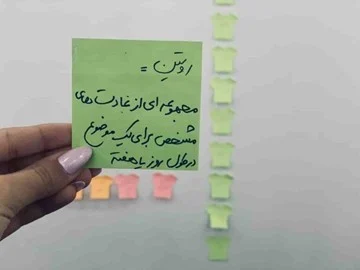 روتین =
مجموعه ای از عادت های
مشخص برای یک موضوع
در طول روز یا هفته